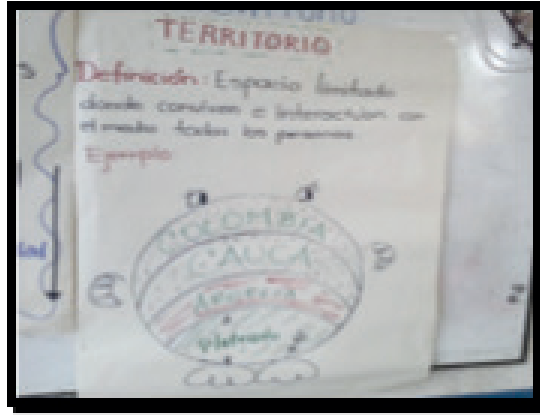 TERRITORIO
Definición: Espacio limitado
donde conviven e interactúan con
el medio todas las personas
Ejemplo
COLOMBIA
CAUCA